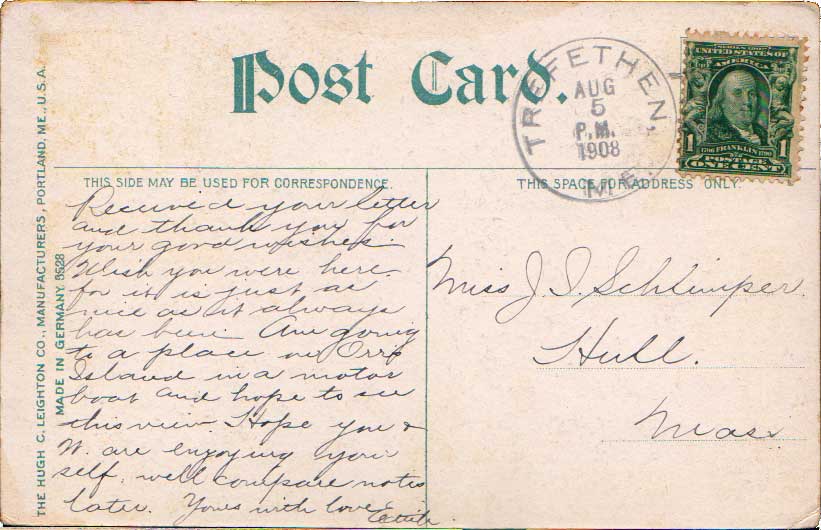 Post Card.
TREFETHEN, ME.
AUG
5
P.M.
1908
SERIES 1902
UNITED STATES OF
AMERICA
1 1706 FRANKLIN 1790 1
POSTAGE
ONE CENT
THE HUGH C. LEIGHTON CO., MANUFACTURERS, PORTLAND, ME., U.S.A.
MADE IN GERMANY 5528
THIS SIDE MAY BE USED FOR CORRESPONDENCE.
Received your letter
and thank you for
your good wishes.
Wish you were here
for it is just as
nice as it always
has been. Am going
to a place on Orr's
Island in a motor
boat and hope to see
this view. Hope you &
W. are enjoying your
self. we'll compare notes
later. Yours with love
THIS SPACE FOR ADDRESS ONLY.
Miss J. I. Schlimper.
Hull.
Mass